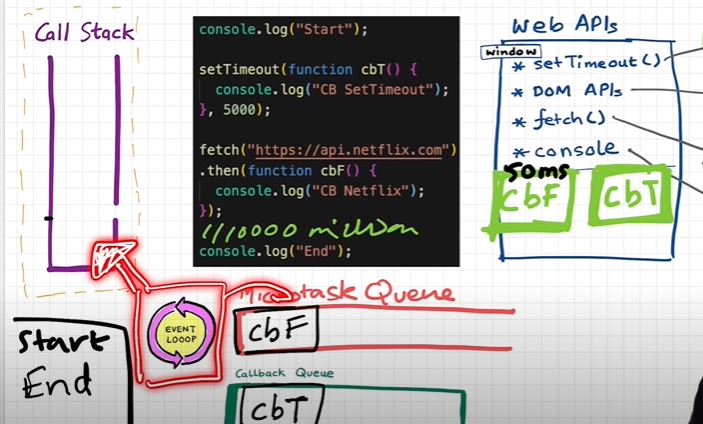 Call Stack
console.log("Start");
setTimeout(function cbT() {
console.log("CB SetTimeout");
}, 5000);
fetch("https://api.netflix.com")
.then(function cbF() {
console.log("CB Netflix");
});
//10000 million
console.log("End");
Web APIs
window
* setTimeout()
* DOM APIs
* fetch()
* console
50ms
cbF
cbT
Microtask Queue
EVENT
LOOOP
cbF
Start
End
Callback Queue
cbT